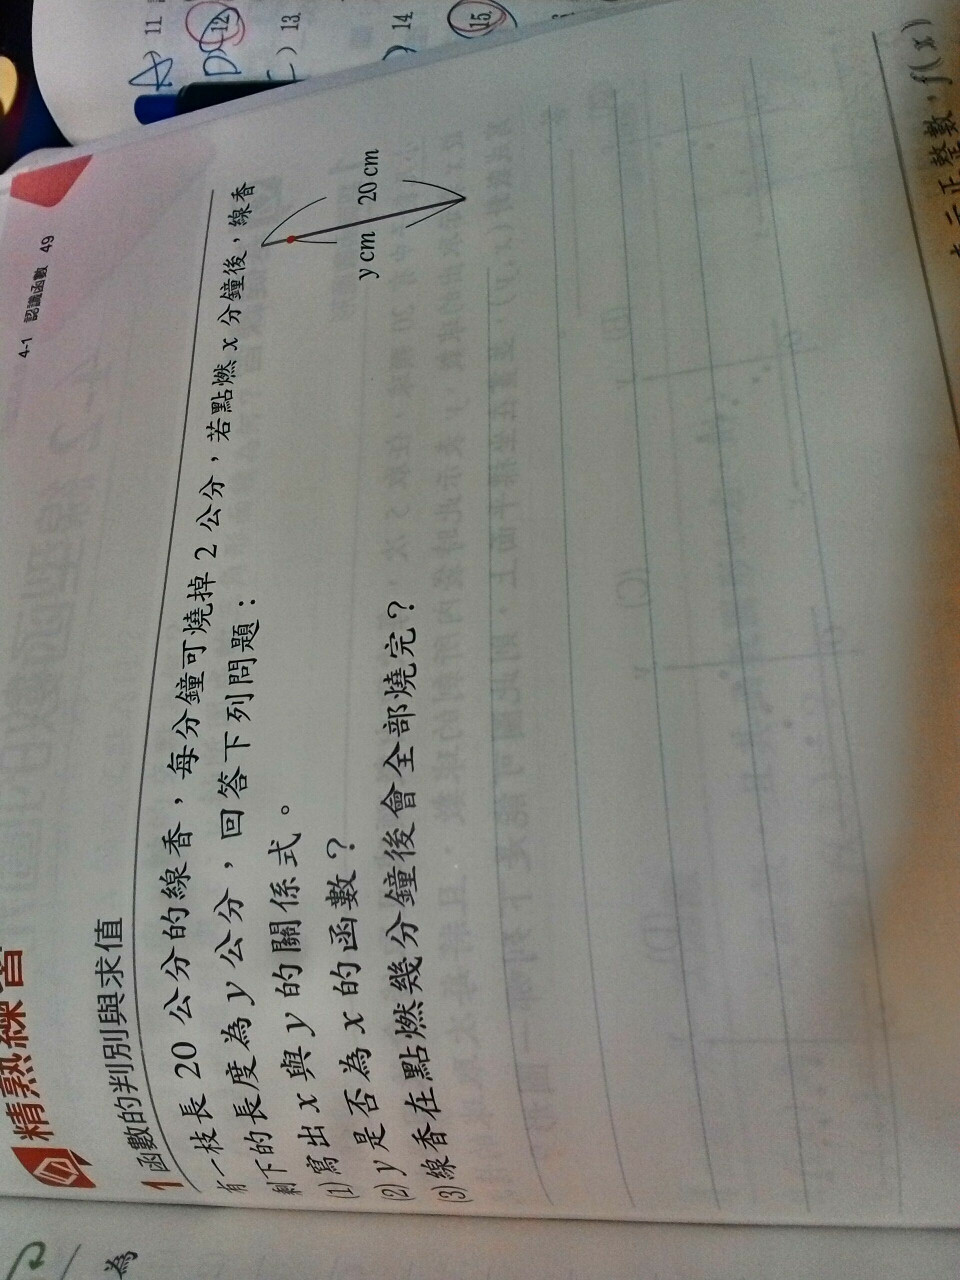 4-1 認識函數 49
精熟練習
1 函數的判別與求值
有一枝長 20 公分的線香，每分鐘可燒掉 2 公分，若點燃 x 分鐘後，線香
剩下的長度為 y 公分，回答下列問題：
(1) 寫出 x 與 y 的關係式。
(2) y 是否為 x 的函數？
(3) 線香在點燃幾分鐘後會全部燒完？
y cm
20 cm
11
12
13
14
15
正整數，f(x)
為